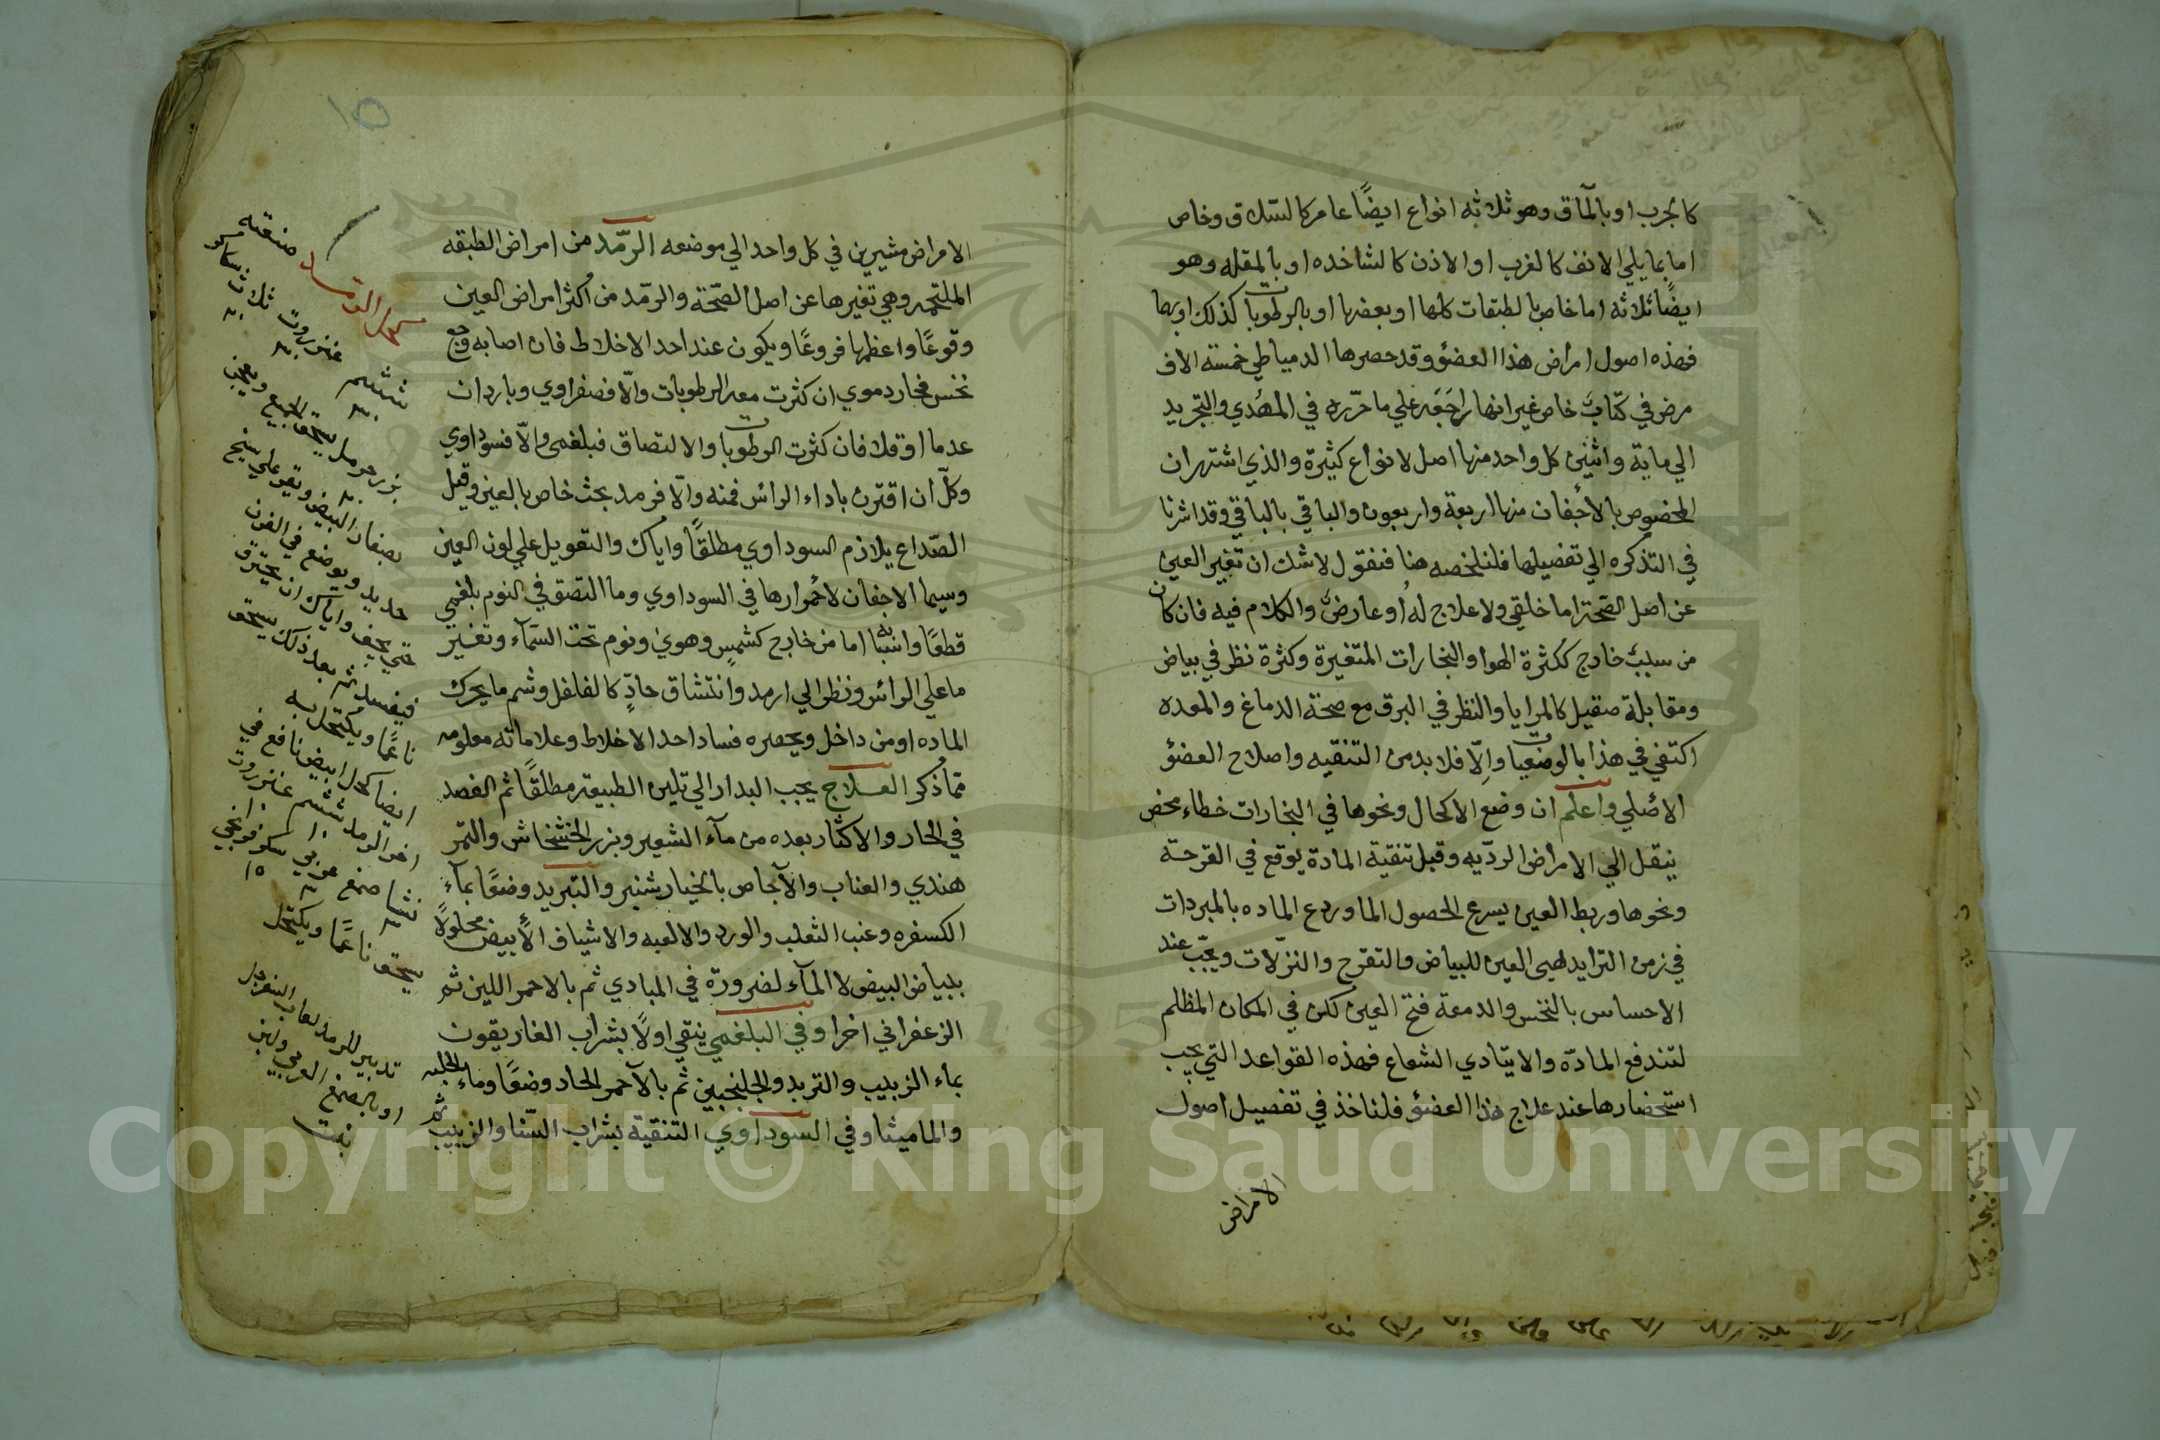 كالجرب او بالمآق وهو ثلاثة انواع ايضًا عام كالسلاق وخاص
اما بما يلي الانف كالغرب او الاذن كالشاخده او بالمقله وهو
ايضًا ثلاثه اما خاص بالطبقات كلها او بعضها او بالرطوبات كذلك او بهما
فهذه اصول امراض هذا العضو وقد حصرها الدمياطي خمسة الاف
مرض في كتاب خاص غير انها راجعة علي ما حرره في المهذي والتجريد
الي ماية واثنين كل واحد منها اصل لانواع كثيرة والذي اشتهر ان
المخصوص بالاجفان منها اربعة واربعون والباقي بالباقي وقد اشرنا
في التذكره الي تفصيلها فلنلخصه هنا فنقول لا شك ان تغير العين
عن اصل الصحة اما خلقي ولا علاج له او عارض والكلام فيه فان كان
من سبب خارج ككثرة الهوا والبخارات المتغيرة وكثرة نظر في بياض
ومقابلة صقيل كالمرايا والنظر في البرق مع صحة الدماغ والمعده
اكتفي في هذا بالوضعيات والّا فلا بد من التنقيه واصلاح العضو
الاصلي واعلم ان وضع الاكحال ونحوها في البخارات خطاء محض
ينقل الي الامراض الرديه وقبل تنقية المادة يوقع في القرحة
ونحوها وربط العين يسرع لحصول الما وردع الماده بالمبردات
في زمن التزايد يهيى العين للبياض والتقرح والنزلات ويجب عند
الاحساس بالنخس والدمعة فتح العين لكن في المكان المظلم
لتندفع المادّة والا يتادي الشعاع فهذه القواعد التي يجب
استحضارها عند علاج هذا العضو فلناخذ في تفصيل اصول
الامراض
١٥
الامراض مشيرين في كل واحد الي موضعه الرّمد من امراض الطبقه
الملتحمه وهي تغيرها عن اصل الصّحة والرمّد من اكثر امراض العين
وقوعًا واعظمها فروعًا ويكون عند احد الاخلاط فان اصابه وجع
نخس فحار دموي ان كثرت معه الرطوبات والّا فصفراوي وبارد ان
عدما او قلا فان كثرت الرطوبات والالتصاق فبلغمي والّا فسوداوي
وكلّ ان اقترن باداء الراس فمنه والّا فرمد بحث خاص بالعين وقيل
الصّداع يلازم السوداوي مطلقًا واياك والتعويل علي لون العين
وسيما الاجفان لاحمرارها في السوداوي وما التصق في النوم بلغمي
قطعًا واسبابه اما من خارج كشمس وهوي ونوم تحت السّمآء وتغير
ما علي الراس ونظر الي ارمد وانتشاق حادّ كالفلفل وشم ما يحرك
الماده او من داخل ويحصره فساد احد الاخلاط وعلاماته معلومه
مما ذكر العلاج يجب البدار الي تليين الطبيعة مطلقًا ثم الفصد
في الحار والاكثار بعده من مآء الشعير وبزر الخشخاش والتمر
هندي والعناب والآجاص بالخيار شنبر والتبريد وضعًا بمآء
الكسفره وعنب الثعلب والورد والالعبه والاشياف الأبيض محلولًا
ببياض البيض لا المآء لضرورة في المبادي ثم بالاحمر اللين ثم
الزعفراني اخرا وفي البلغمي ينقي اولًا بشراب الغاريقون
بماء الزبيب والتربد والجلنجبين ثم بالآحمر الحاد وضعًا وماء الحلبه
والماميثا وفي السوداوي التنقية بشراب السّنا والزبيب ثم
كحل الرمد صنعته
عنزروت ثلاث سكر
ششم
بزر حرمل يسحق الجميع ويعجن
بصفار البيض ويقرص علي سيخ
حديد ويوضع في الفرن
حتي يجف واياك ان يحترق
فيفسد ثم بعد ذلك يسحق
ناعمًا ويكتحل به
ايضا كحل ابيض نافع في
اخر الرمد ششم عنزروت
نشا صمغ عربي سكر
١٠
١٥
يسحق ناعمًا ويكتحل
تدبير الرمد لعاب السفرجل
او بالصمغ العربي ولبن
Copyright © King Saud University
1957